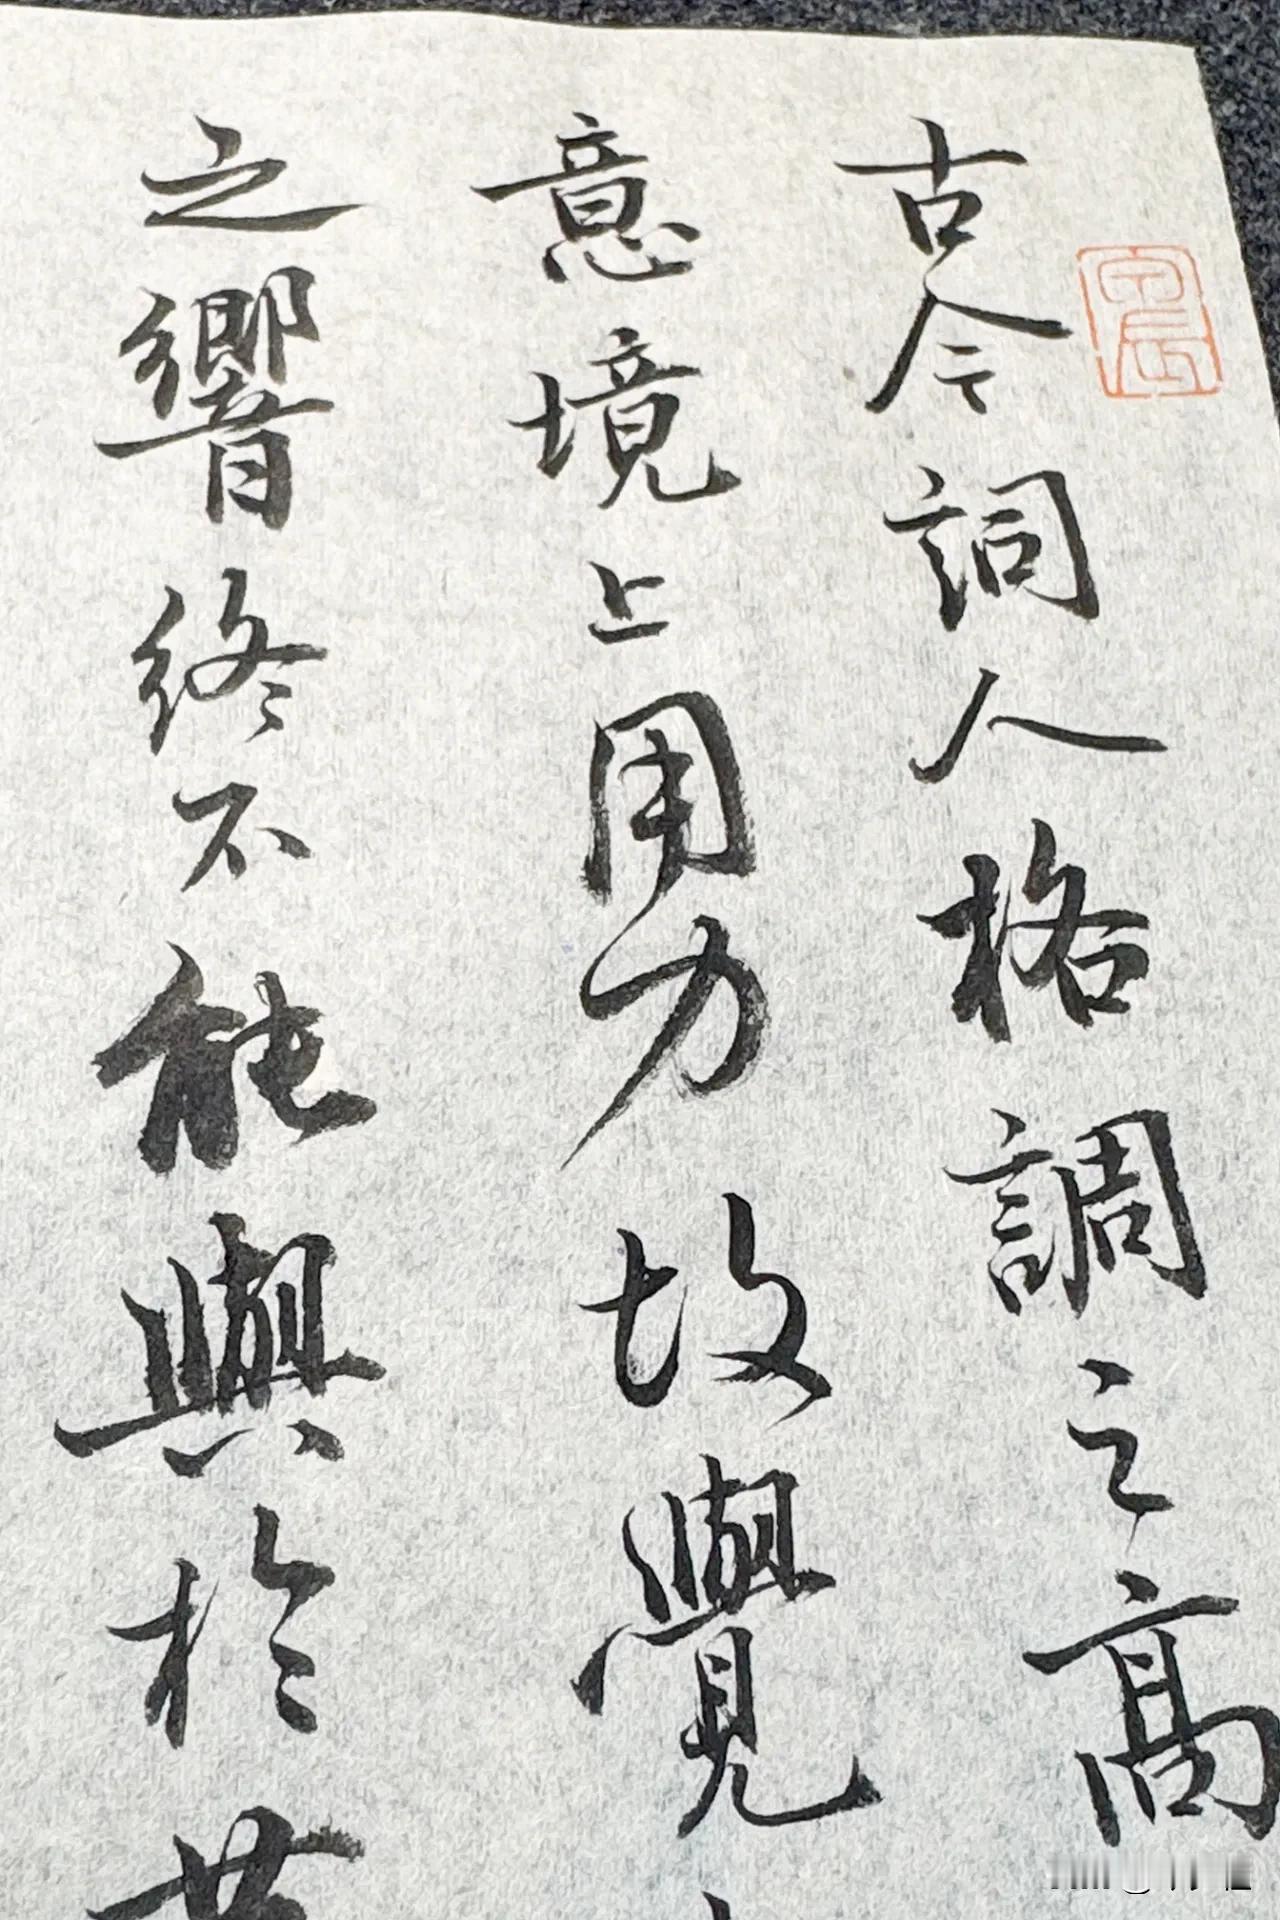 古今詞人格調之高
意境上用力故覺
之響終不能與於